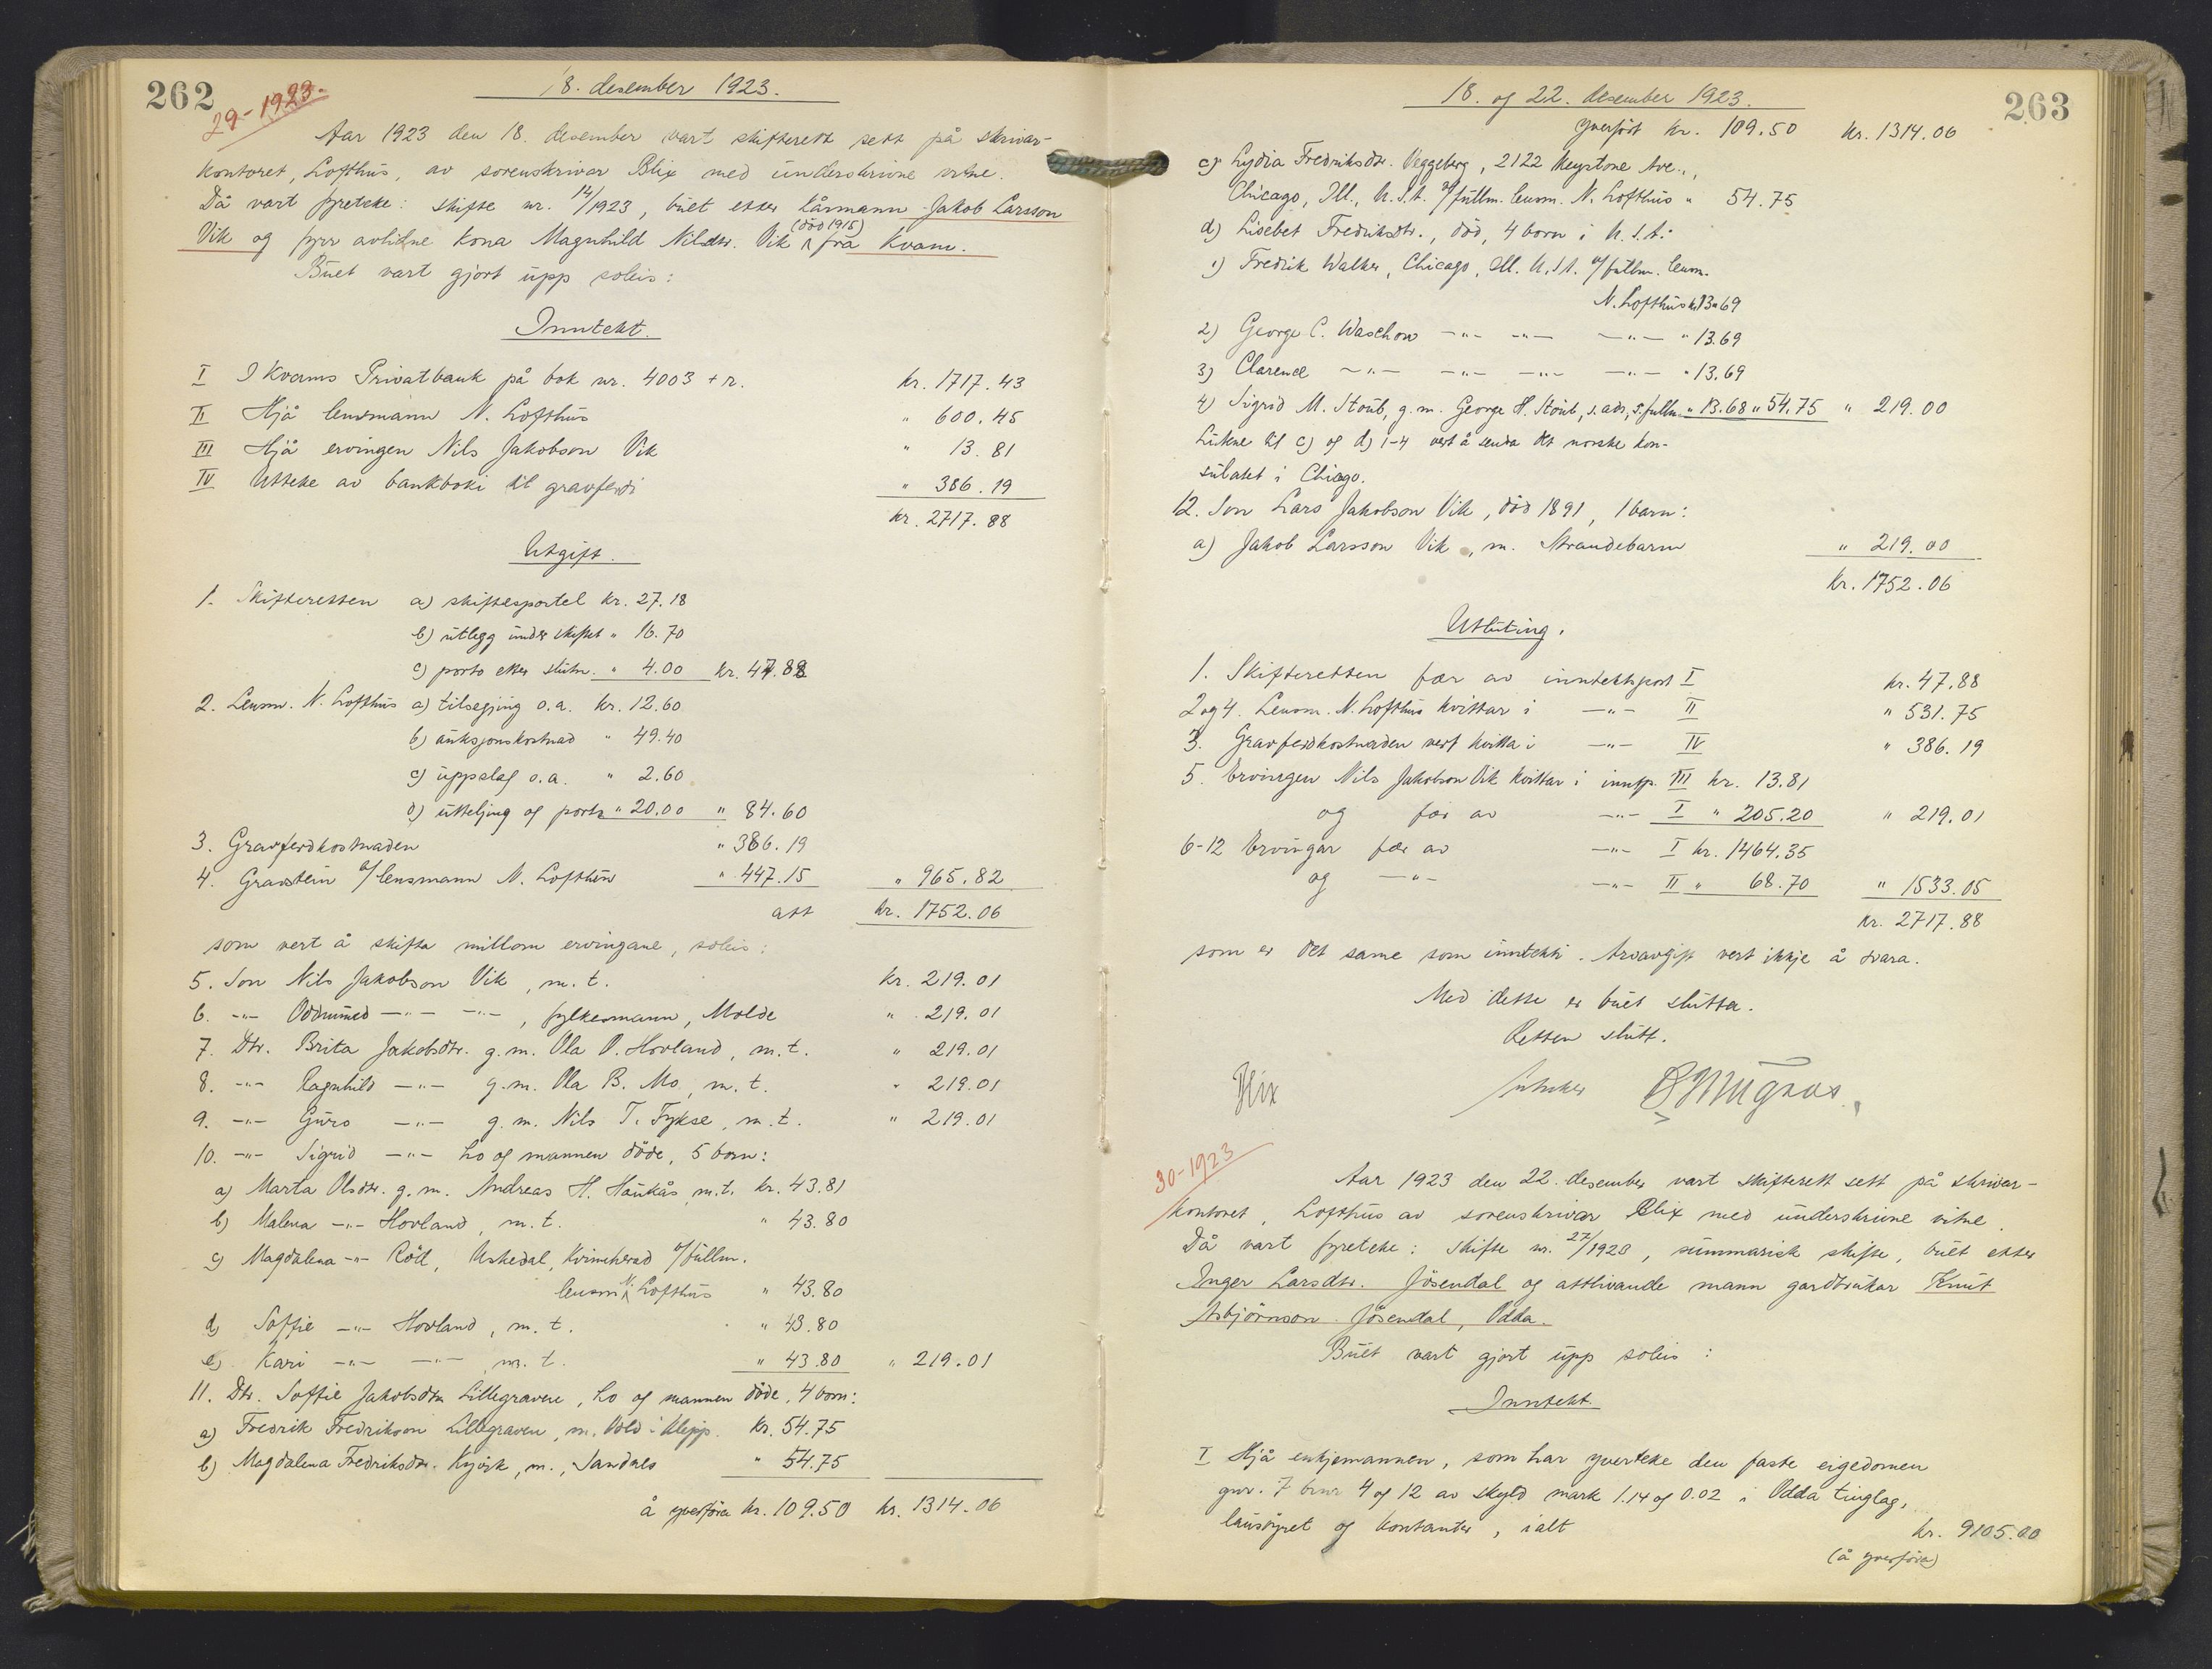 262
29-1923.
18. desember 1923.
Aar 1923 den 18. desember vart skifterett sett på skrivar-
kontoret, Lofthus, av sorenskrivar Blix med underskrivne vitne.
Då vart fyreteke: skifte nr. 14/1923, buet etter kårmann Jakob Larsson
Vik og fyrr avlidne kona Magnhild Nilsdtr. Vik (död 1915) frå Kvam.
Buet vart gjort upp soleis:
Inntekt.
I I Kvams Privatbank på bok nr. 4003 + r. kr. 1717.43
II Hjå lensmann N. Lofthus " 600.45
III Hjå ervingen Nils Jakobson Vik " 13.81
IV Utteke av bankboki til gravferdi " 386.19
kr. 2717.88
Utgift.
1. Skifteretten a) skiftesportel kr. 27.18
b) utlegg under skiftet " 16.70
c) porto etter slutn. " 4.00 kr. 47.88
2. Lensm. N. Lofthus a) tilsegjing o.a. kr. 12.60
b) auksjonskostnad " 49.40
c) uppslag o.a. " 2.60
d) utteljing og porto " 20.00 " 84.60
3. Gravferdkostnaden " 386.19
4. Gravstein v/lensmann N. Lofthus " 447.15 " 965.82
att kr. 1752.06
som vert å skifta millom ervingane, soleis:
5. Son Nils Jakobson Vik, m. t. kr. 219.01
6. -"- Oddmund -"- -"-, fylkesmann, Molde " 219.01
7. Dtr. Brita Jakobsdtr. g.m. Ola O. Hovland, m.t. " 219.01
8. -"- Ragnhild -"- g.m. Ola B. Mo, m.t. " 219.01
9. -"- Guro -"- g.m. Nils T. Fykse, m.t. " 219.01
10. -"- Sigrid -"- ho og mannen döde, 5 born:
a) Marta Olsdtr. g.m. Andreas H. Haukås, m.t. kr. 43.81
b) Malena -"- Hovland, m.t. " 43.80
c) Magdalena -"- Röd, Uskedal, Kvinnherad v/fullm.
lensm. N. Lofthus " 43.80
d) Soffie -"- Hovland, m.t. " 43.80
e) Kari -"- -"- m.t. " 43.80 " 219.01
11. Dtr. Soffie Jakobsdtr. Lillegraven, ho og mannen döde, 4 born:
a) Fredrik Fredrikson Lillegraven, m. Vold i Klepp. kr. 54.75
b) Magdalena Fredriksdtr. Kyvik, m., Sandnes " 54.75
å yverföra kr. 109.50 kr. 1314.06
263
18. og 22. desember 1923.
yverfört kr. 109.50 kr. 1314.06
c) Lydia Fredriksdtr. Veggeberg, 2122 Keystone Ave.,
Chicago, Ill., U.S.A. v/fullm. lensm. N. Lofthus " 54.75
d) Lisebet Fredriksdtr., död, 4 born i U.S.A:
1) Fredrik Walker, Chicago, Ill. U.S.A. v/fullm. lensm.
N. Lofthus kr. 13.69
2) George C. Waschow -"- -"- -"- " 13.69
3) Clarence -"- -"- -"- -"- " 13.69
4) Sigrid M. Stoub, g.m. George H. Stoub, s. adr, s. fullm. " 13.68 " 54.75 " 219.00
Lutene til c) og d) 1-4 vert å senda det norske kon-
sulatet i Chicago.
12. Son Lars Jakobson Vik, död 1891, 1 barn:
a) Jakob Larsson Vik, m. Strandebarm " 219.00
kr. 1752.06
Utluting.
1. Skifteretten fær av inntektspost I kr. 47.88
2 og 4. Lensm. N. Lofthus kvittar i -"- II " 531.75
3. Gravferdkostnaden vert kvitta i -"- IV " 386.19
5. Ervingen Nils Jakobson Vik kvittar i inntp. III kr. 13.81
og fær av -"- I " 205.20 " 219.01
6-12 Ervingar fær av -"- I kr. 1464.35
og -"- -"- II " 68.70 " 1533.05
kr. 2717.88
som er det same som inntekti. Arvavgift vert ikkje å svara.
Med dette er buet slutta.
Retten slutt.
Blix
30-1923
Aar 1923 den 22. desember vart skifterett sett på skrivar-
kontoret, Lofthus av sorenskrivar Blix med underskrivne vitne.
Då vart fyreteke: Skifte nr. 27/1923, summarisk skifte, buet etter
Inger Larsdtr. Jösendal og attlivande mann gardbrukar Knut
Asbjörnson Jösendal, Odda.
Buet vart gjort upp soleis:
Inntekt.
I Hjå enkjemannen, som har yverteke den faste eigedomen
gnr. 7 bnr 4 og 12 av skyld mark 1.14 og 0.02 i Odda tinglag,
lausöyret og kontanter, ialt kr. 9105.00
(å yverföra)